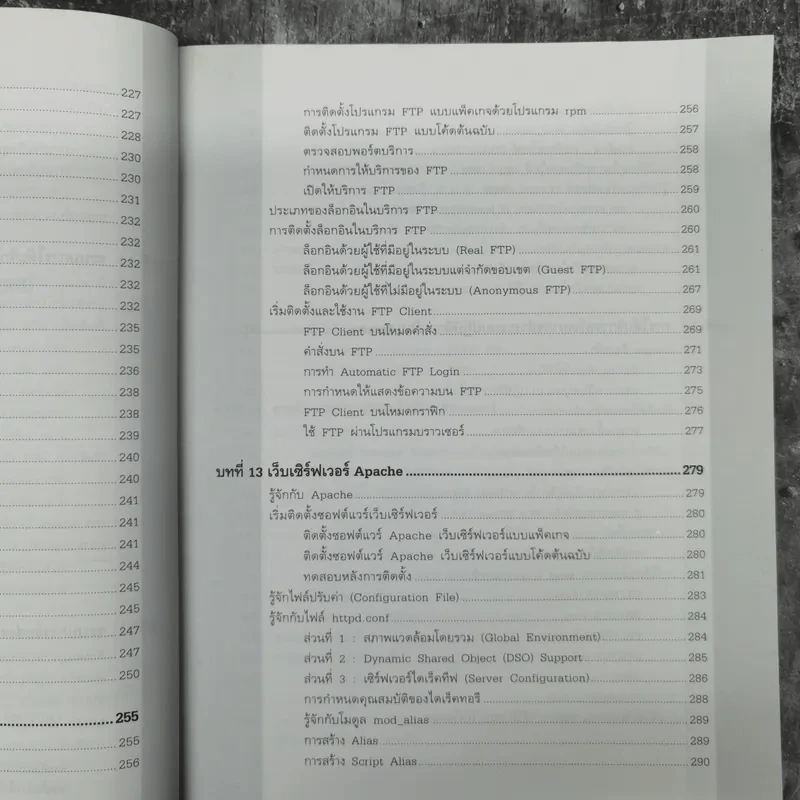 227
227
228
230
230
231
232
232
232
232
232
235
235
236
238
238
239
240
240
241
241
241
244
245
245
247
247
250
255
255
256
การติดตั้งโปรแกรม FTP แบบแพ็คเกจด้วยโปรแกรม rpm 256
ติดตั้งโปรแกรม FTP แบบโค้ดต้นฉบับ 257
ตรวจสอบพอร์ตบริการ 258
กำหนดการให้บริการของ FTP 258
เปิดให้บริการ FTP 259
ประเภทของล็อกอินในบริการ FTP 260
การติดตั้งล็อกอินในบริการ FTP 260
ล็อกอินด้วยผู้ใช้ที่มีอยู่ในระบบ (Real FTP) 261
ล็อกอินด้วยผู้ใช้ที่มีอยู่ในระบบแต่จำกัดขอบเขต (Guest FTP) 261
ล็อกอินด้วยผู้ใช้ที่ไม่มีอยู่ในระบบ (Anonymous FTP) 267
เริ่มติดตั้งและใช้งาน FTP Client 269
FTP Client บนโหมดคำสั่ง 269
คำสั่งบน FTP 271
การทำ Automatic FTP Login 273
การกำหนดให้แสดงข้อความบน FTP 275
FTP Client บนโหมดกราฟิก 276
ใช้ FTP ผ่านโปรแกรมบราวเซอร์ 277
บทที่ 13 เว็บเซิร์ฟเวอร์ Apache 279
รู้จักกับ Apache 279
เริ่มติดตั้งซอฟต์แวร์เว็บเซิร์ฟเวอร์ 280
ติดตั้งซอฟต์แวร์ Apache เว็บเซิร์ฟเวอร์แบบแพ็คเกจ 280
ติดตั้งซอฟต์แวร์ Apache เว็บเซิร์ฟเวอร์แบบโค้ดต้นฉบับ 280
ทดสอบหลังการติดตั้ง 281
รู้จักไฟล์ปรับค่า (Configuration File) 283
รู้จักกับไฟล์ httpd.conf 284
ส่วนที่ 1 : สภาพแวดล้อมโดยรวม (Global Environment) 284
ส่วนที่ 2 : Dynamic Shared Object (DSO) Support 285
ส่วนที่ 3 : เซิร์ฟเวอร์ไดเร็คทีฟ (Server Configuration) 286
การกำหนดคุณสมบัติของไดเร็คทอรี 288
รู้จักกับโมดูล mod_alias 289
การสร้าง Alias 289
การสร้าง Script Alias 290